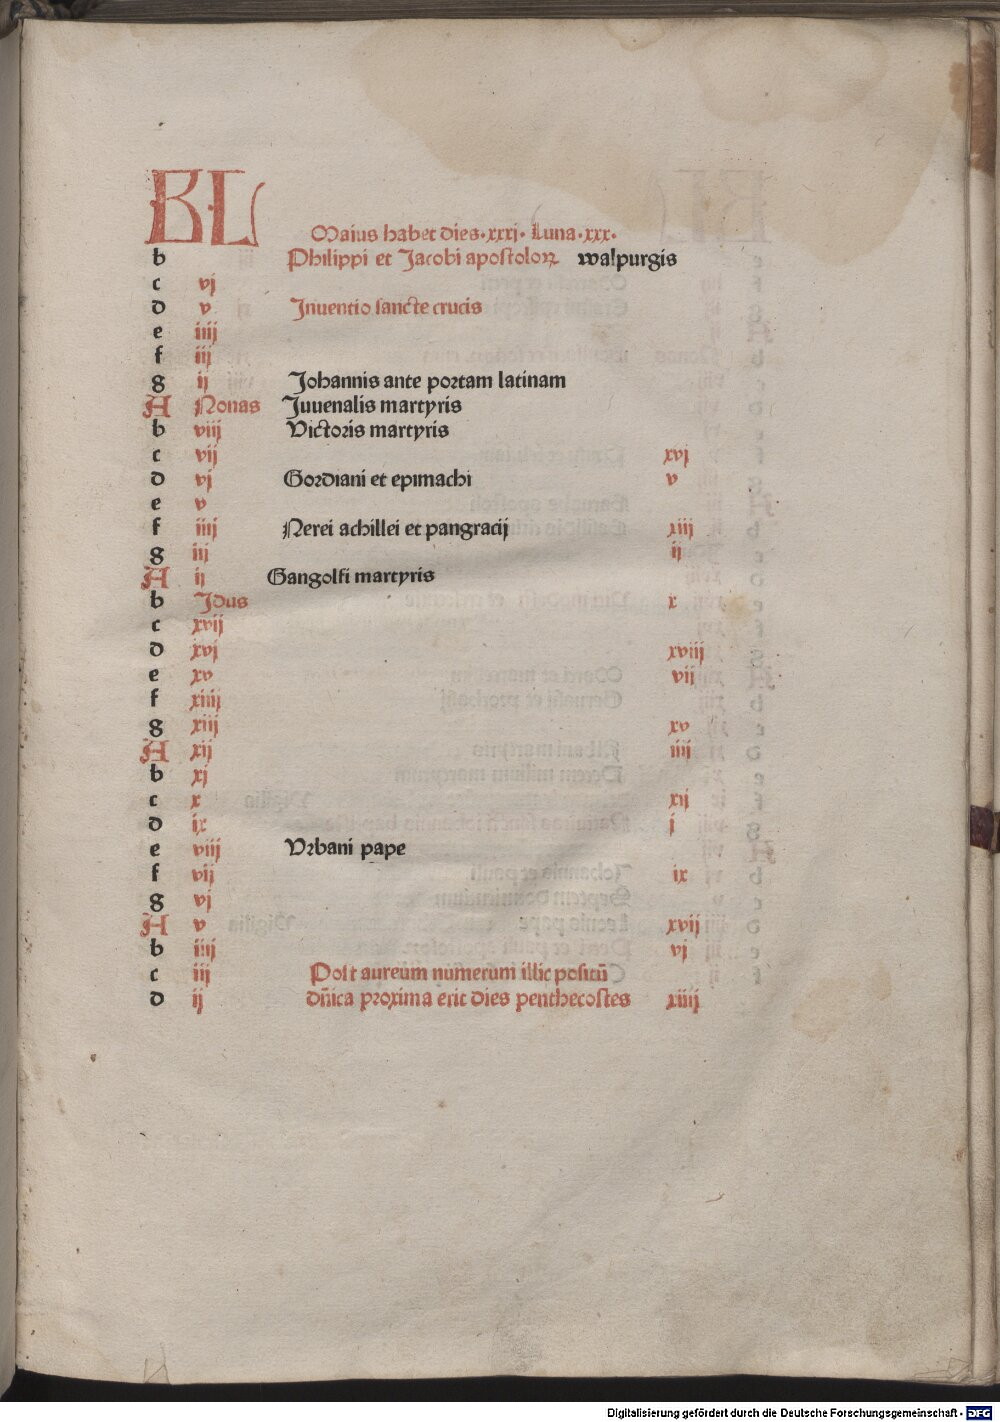 KL Maius habet dies·xxxj· Luna·xxx·
b Philippi et Jacobi apostoloꝝ walpurgis
c vj
d v Inuentio sancte crucis
e iiij
f iij
g ij Johannis ante portam latinam
A Nonas Juuenalis martyris
b viij Victoris martyris
c vij xvj
d vj Gordiani et epimachi v
e v
f iiij Nerei achillei et pangracij xiij
g iij ij
A ij Gangolfi martyris
b Idus x
c xvij
d xvj xviij
e xv vij
f xiiij
g xiij xv
A xij iiij
b xj
c x xij
d ix j
e viij Vrbani pape
f vij ix
g vj
A v xvij
b iiij vj
c iij Post aureum numerum illic positū
d ij dñica proxima erit dies penthecostes xiiij
Digitalisierung gefördert durch die Deutsche Forschungsgemeinschaft - DFG